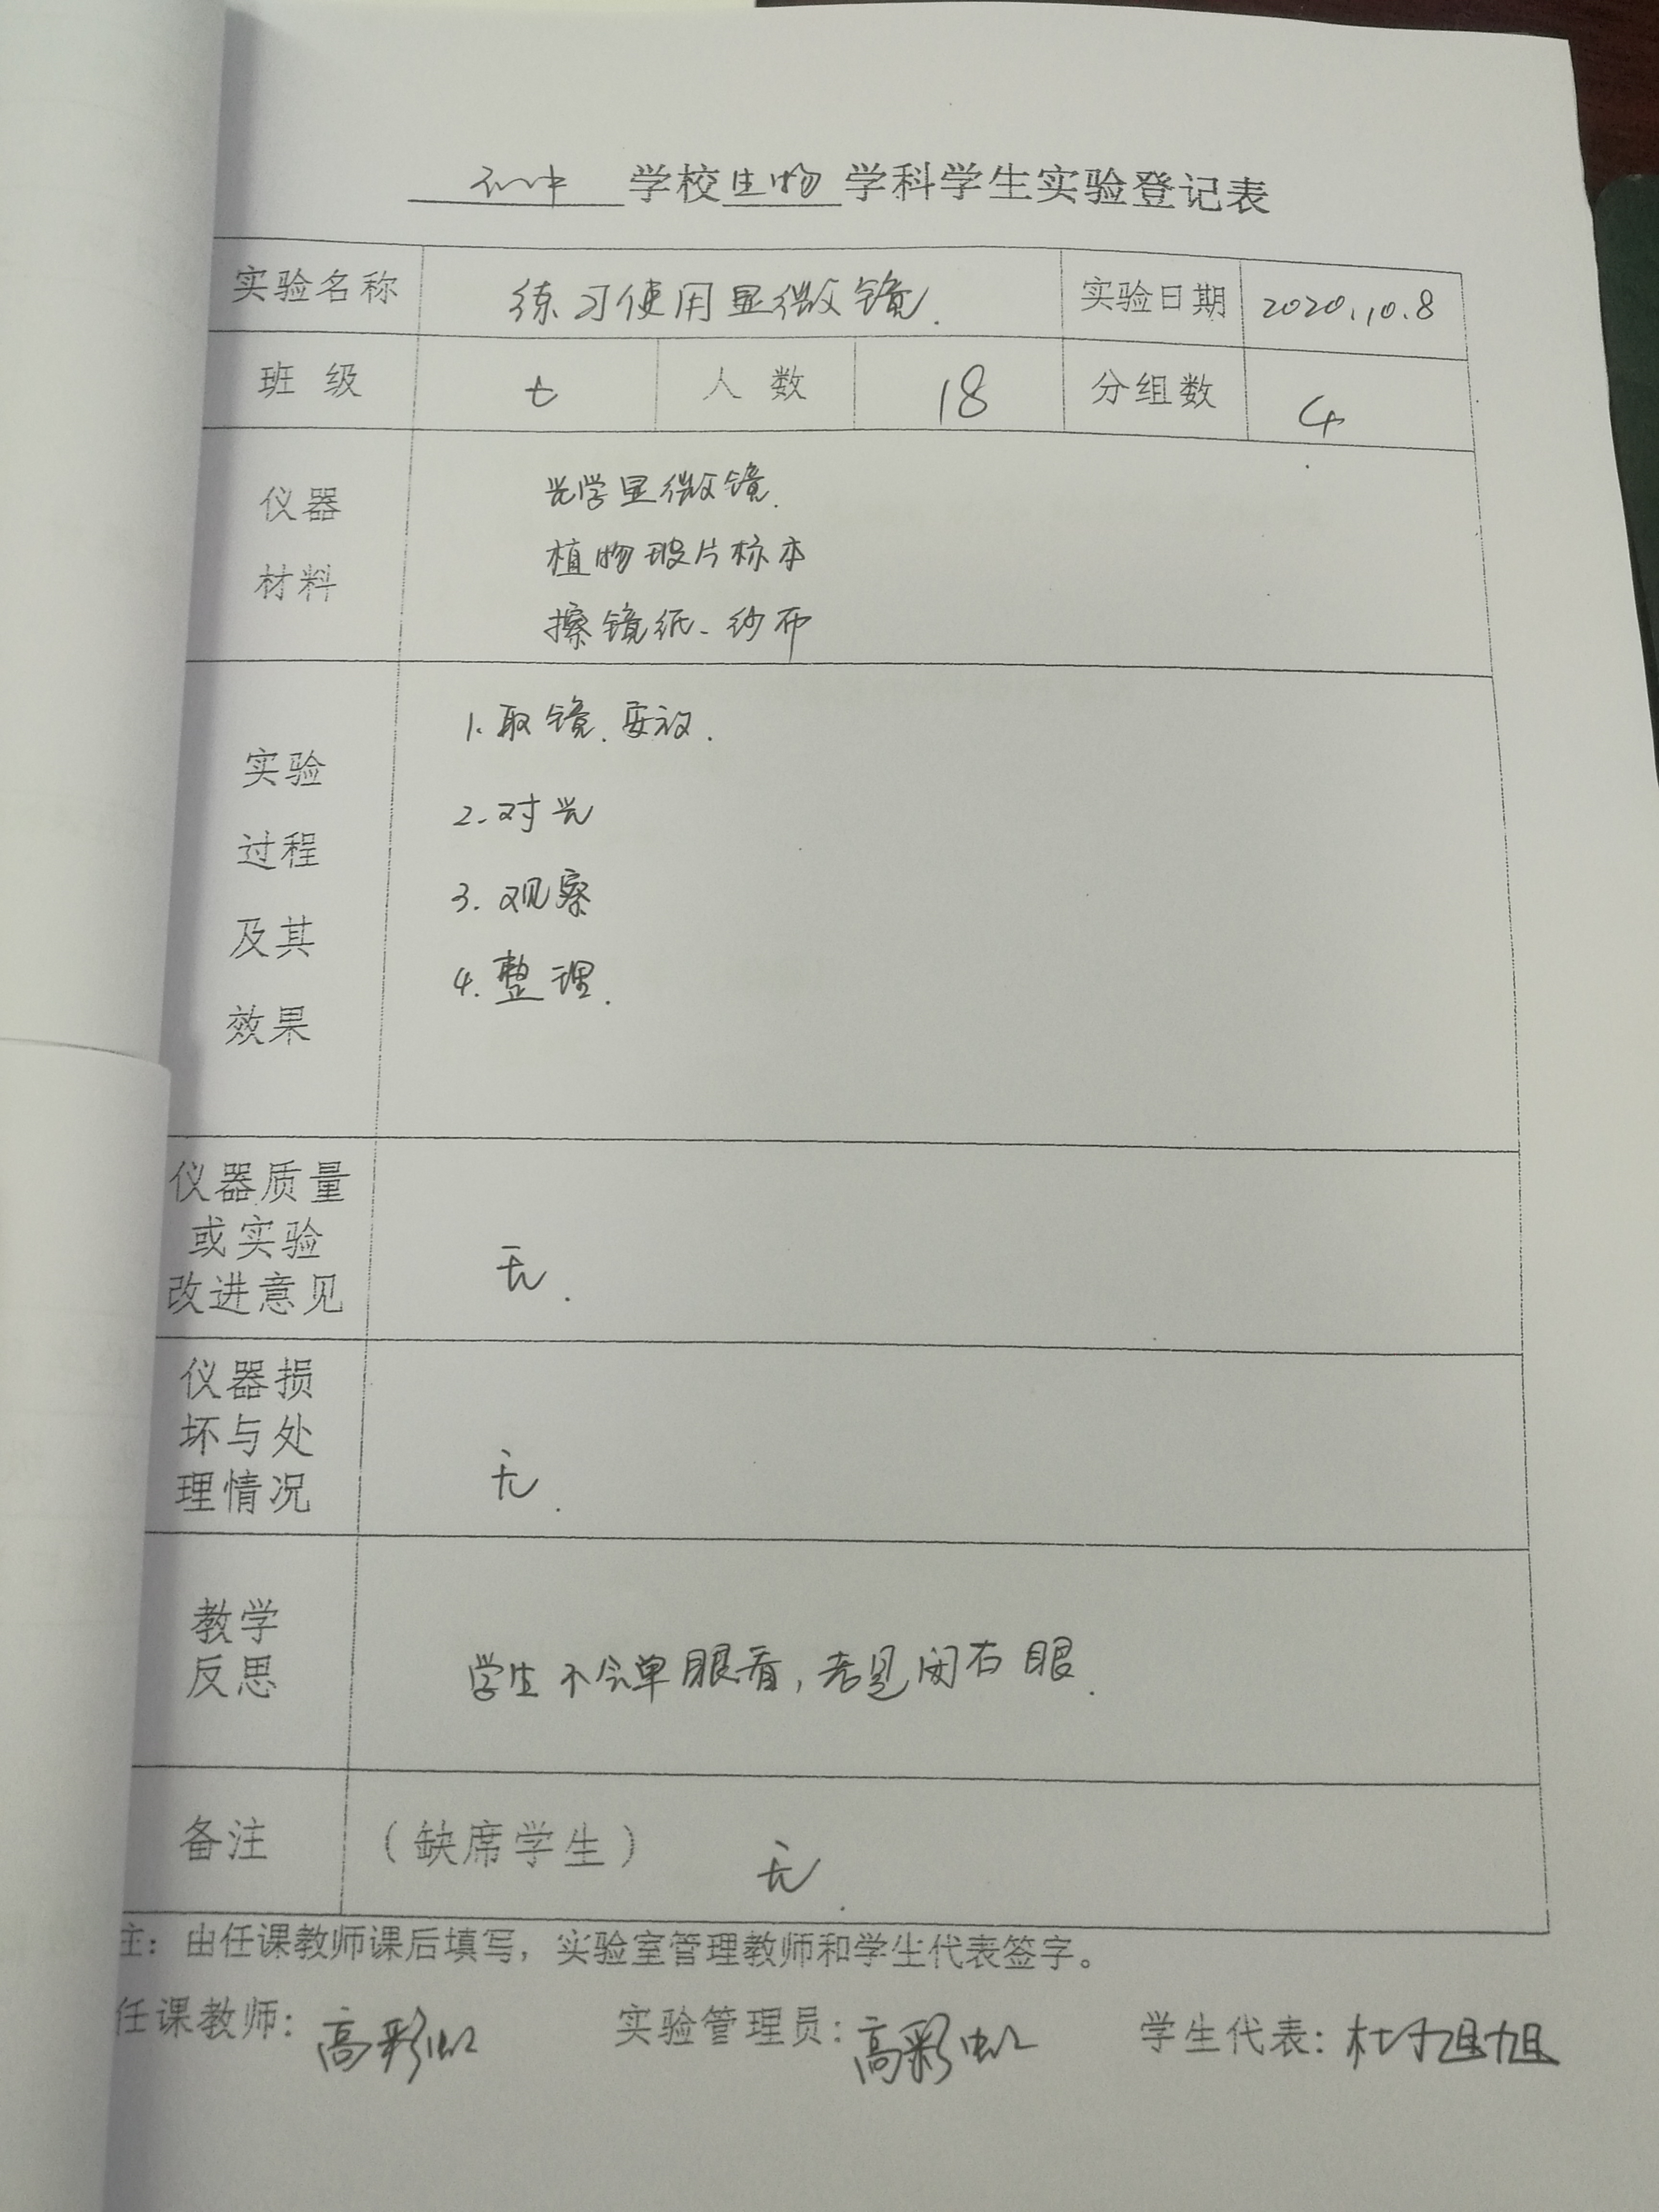 学校生物学科学生实验登记表
实验名称 练习使用显微镜. 实验日期 2020.10.8
班 级 七 人 数 18 分组数 4
仪器
材料
光学显微镜.
植物玻片标本
擦镜纸、纱布
实验
过程
及其
效果
1.取镜.安放.
2.对光
3.观察
4.整理.
仪器质量
或实验
改进意见
无.
仪器损
坏与处
理情况
无.
教学
反思
学生不会单眼看,老是闭右眼.
备注 (缺席学生) 无.
注：由任课教师课后填写，实验室管理教师和学生代表签字。
任课教师：高彩虹 实验管理员：高彩虹 学生代表：杜旭